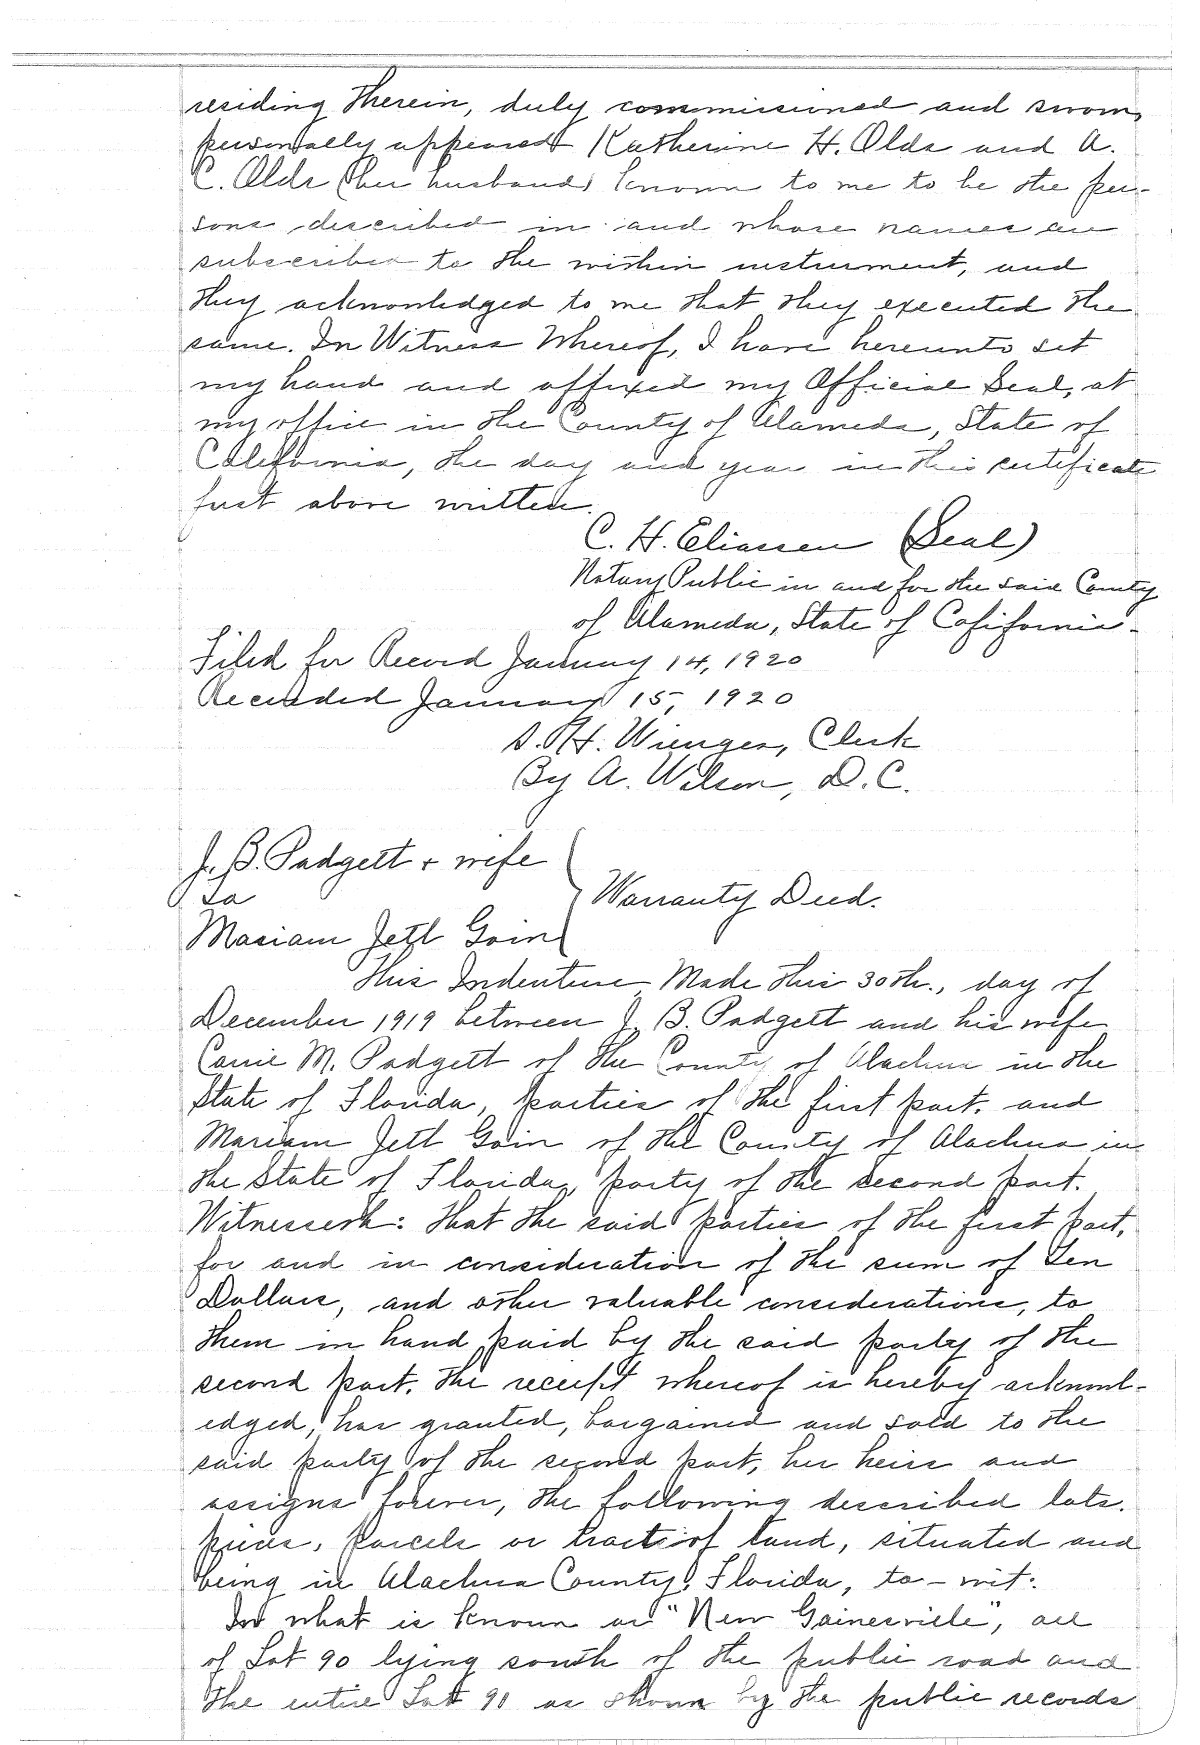 residing therein, duly commissioned and sworn,
personally appeared Katherine H. Olds and A.
C. Olds (her husband) known to me to be the per-
sons described in and whose names are
subscribed to the within instrument, and
they acknowledged to me that they executed the
same. In Witness Whereof, I have hereunto set
my hand and affixed my Official Seal, at
my office in the County of Alameda, State of
California, the day and year in this certificate
first above written.
C. H. Eliassen (Seal)
Notary Public in and for the said County
of Alameda, State of California.
Filed for Record January 14, 1920
Recorded January 15, 1920
S. H. Wienges, Clerk
By A. Wilson, D.C.
J. B. Padgett + wife
to
Mariam Jett Goin
Warranty Deed.
This Indenture, Made this 30th., day of
December 1919 between J. B. Padgett and his wife
Carrie M. Padgett of the County of Alachua in the
State of Florida, parties of the first part, and
Mariam Jett Goin of the County of Alachua in
the State of Florida, party of the second part.
Witnesseth: That the said parties of the first part,
for and in consideration of the sum of Ten
Dollars, and other valuable considerations, to
them in hand paid by the said party of the
second part, the receipt whereof is hereby acknowl-
edged, has granted, bargained and sold to the
said party of the second part, her heirs and
assigns forever, the following described lots,
pieces, parcels or tracts of land, situated and
being in Alachua County, Florida, to-wit:
In what is known as "New Gainesville", all
of Lot 90 lying south of the public road and
the entire Lot 91 as shown by the public records